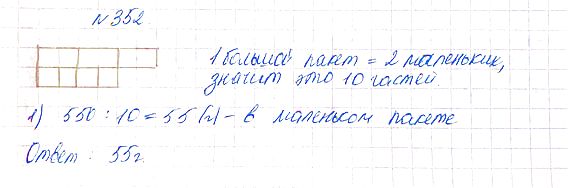 №352.
1 большой пакет = 2 маленьких,
значит это 10 частей.
1) 550 : 10 = 55 (г) – в маленьком пакете
Ответ: 55г.